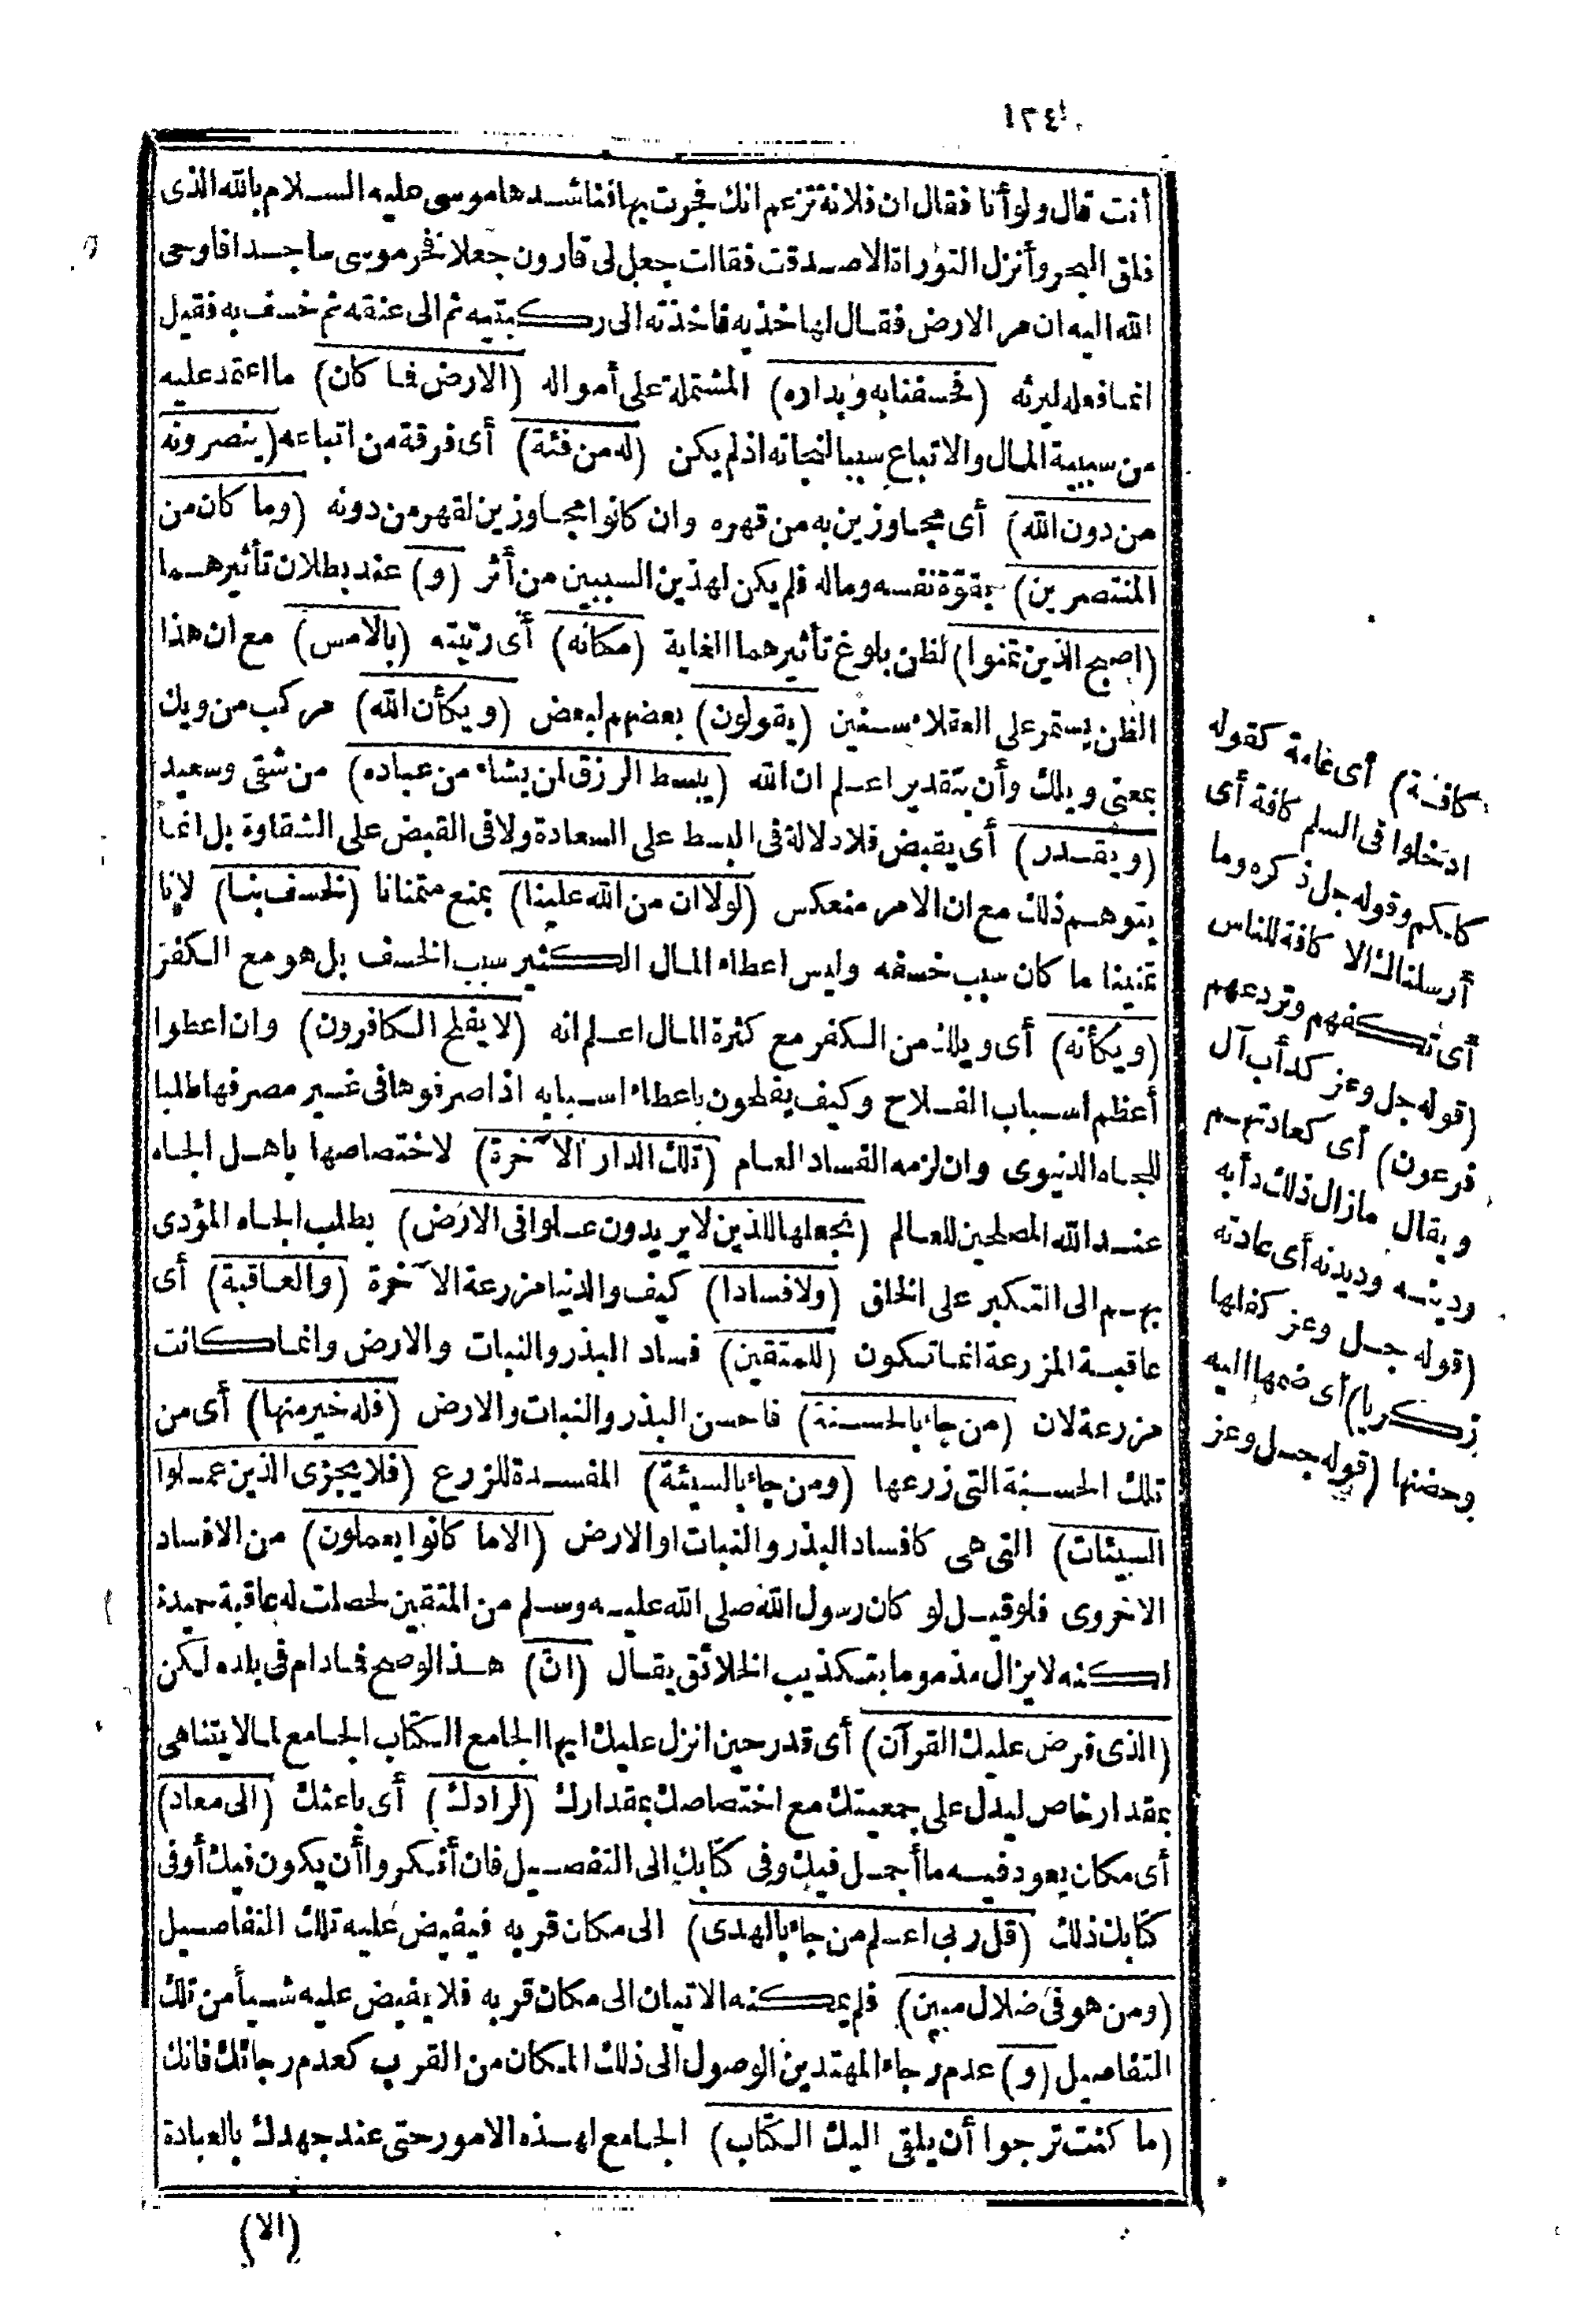 ١٣٤
أنت قال ولو أنا فقال ان فلانة تزعم انك فجرت بها فناشدها موسى عليه السلام بالله الذى
فلق البحر وأنزل التوراة الا صدقت فقالت جعل لى قارون جعلا فخر موسى ساجدا فاوحى
الله اليه ان مر الارض فقال لها خذيه فاخذته الى ركبتيه ثم الى عنقه ثم خسف به فقيل
انما فعله ليرثه (فخسفنا به وبداره) المشتملة على أمواله (الارض فما كان) ما اعتمد عليه
من سببية المال والاتباع سببا لنجاته اذ لم يكن (له من فئة) أى فرقة من اتباعه (ينصرونه
من دون الله) أى مجاوزين به من قهره وان كانوا مجاوزين لقهر من دونه (وما كان من
المنتصرين) بقوّة نفسه وماله فلم يكن لهذين السببين من أثر (و) عند بطلان تأثيرهما
(اصبح الذين تمنوا) لظن بلوغ تأثيرهما الغاية (مكانه) أى رتبته (بالامس) مع ان هذا
الظن يستمر على العقلاء سنين (يقولون) بعضهم لبعض (ويكأن الله) مركب من ويك
بمعنى ويلك وأن بتقدير اعلم ان الله (يبسط الرزق لمن يشاء من عباده) من شقى وسعيد
(ويقدر) أى يقبض فلا دلالة فى البسط على السعادة ولا فى القبض على الشقاوة بل انما
يتوهم ذلك مع ان الامر منعكس (لولا ان من الله علينا) بمنع متمنانا (لخسف بنا) لانا
تمنينا ما كان سبب خسفه وليس اعطاء المال الكثير سبب الخسف بل هو مع الكفر
(ويكأنه) أى ويلك من الكفر مع كثرة المال اعلم انه (لا يفلح الكافرون) وان اعطوا
أعظم اسباب الفلاح وكيف يفلحون باعطاء اسبابه اذا صرفوها فى غير مصرفها طلبا
للجاه الدنيوى وان لزمه الفساد العام (تلك الدار الآخرة) لاختصاصها باهل الجاه
عند الله المصلحين للعالم (نجعلها للذين لا يريدون علوا فى الارض) بطلب الجاه المؤدى
بهم الى التكبر على الخلق (ولا فسادا) كيف والدنيا مزرعة الآخرة (والعاقبة) أى
عاقبة المزرعة انما تكون (للمتقين) فساد البذر والنبات والارض وانما كانت
مزرعة لان (من جاء بالحسنة) فاحسن البذر والنبات والارض (فله خير منها) أى من
تلك الحسنة التى زرعها (ومن جاء بالسيئة) المفسدة للزرع (فلا يجزى الذين عملوا
السيئات) التى هى كافساد البذر والنبات او الارض (الا ما كانوا يعملون) من الافساد
الاخروى فلو قيل لو كان رسول الله صلى الله عليه وسلم من المتقين لحصلت له عاقبة حميدة
لكنه لا يزال مذموما بتكذيب الخلائق يقال (ان) هذا الوصح فمادام فى بلده لكن
(الذى فرض عليك القرآن) أى قدر حين انزل عليك ايها الجامع الكتاب الجامع لما لا يتناهى
بمقدار خاص ليدل على جمعيتك مع اختصاصك بمقدارك (لرادك) أى باعثك (الى معاد)
أى مكان يعود فيه ما أجمل فيك وفى كتابك الى التفصيل فان أنكروا أن يكون فيك أو فى
كتابك ذلك (قل ربى اعلم من جاء بالهدى) الى مكان قربه فيفيض عليه تلك التفاصيل
(ومن هو فى ضلال مبين) فلم يمكنه الاتيان الى مكان قربه فلا يفيض عليه شيأ من تلك
التفاصيل (و) عدم رجاء المهتدين الوصول الى ذلك المكان من القرب كعدم رجائك فانك
(ما كنت ترجوا أن يلقى اليك الكتاب) الجامع لهذه الامور حتى عند جهدك بالعبادة
(الا)
كافة) أى عامة كقوله
ادخلوا فى السلم كافة أى
كلكم وقوله جل ذكره وما
أرسلناك الا كافة للناس
أى تكفهم وتردعهم
(قوله جل وعز كدأب آل
فرعون) أى كعادتهم
ويقال مازال ذلك دأبه
ودينه وديدنه أى عادته
(قوله جل وعز كفلها
زكريا) أى ضمها اليه
وحضنها (قوله جل وعز